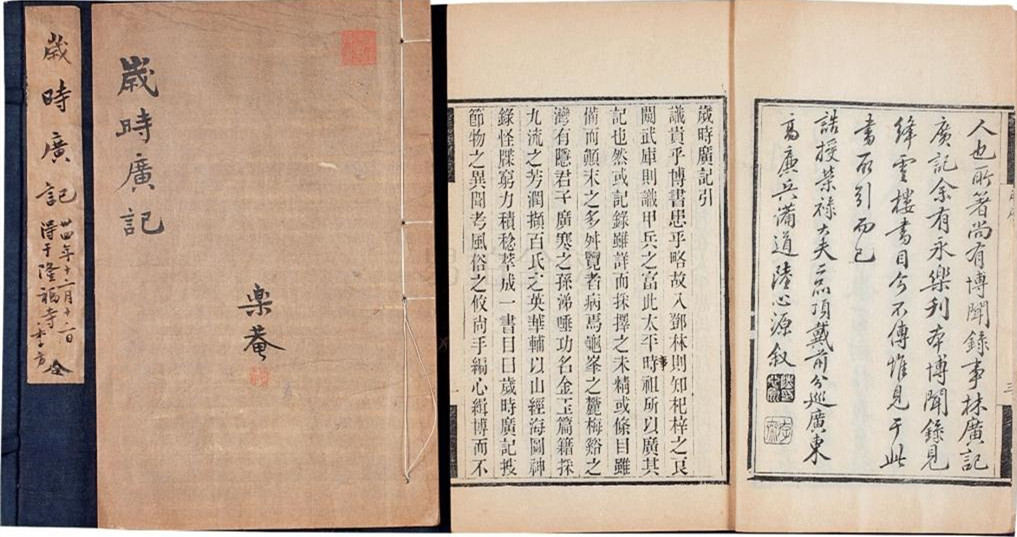 歲時廣記
卌四年十二月十六日
得于隆福寺
全
歲時廣記
楽菴
人也所著尚有博聞錄事林廣記
廣記余有永樂刊本博聞錄見
絳雲樓書目今不傳惟見于此
書所引而已
誥授榮祿大夫二品頂戴前分巡廣東
高廉兵備道陸心源叙
歲時廣記引
識貴乎博書患乎略故入鄧林則知杞梓之良
閱武庫則識甲兵之富此太平時祖所以廣其
記也然或記錄雖詳而採擇之未精或條目雖
備而顛末之多舛覽者病焉龜峯之麓梅谿之
灣有隱君子廣寒之孫涕唾功名金玉篇籍採
九流之芳潤擷百氏之英華輔以山經海圖神
錄怪牒窮力積稔萃成一書目曰歲時廣記披
節物之異聞考風俗之攸尚手編心緝博而不